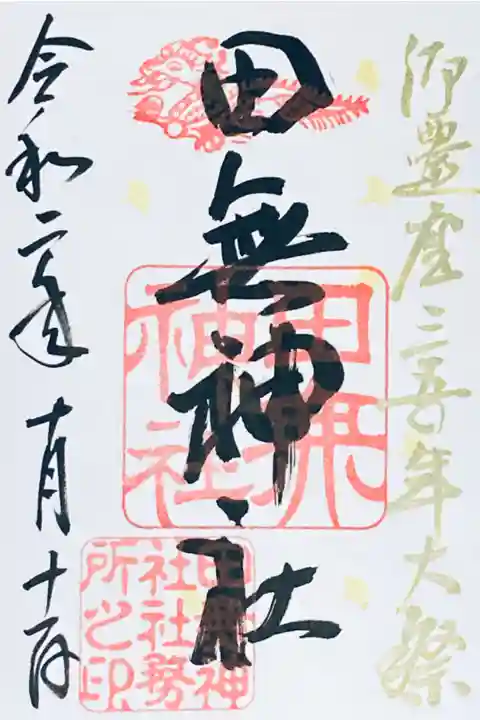 御遷座三五〇年大祭
田無神社
田無神社
田無神社社務所之印
令和二年十月十日